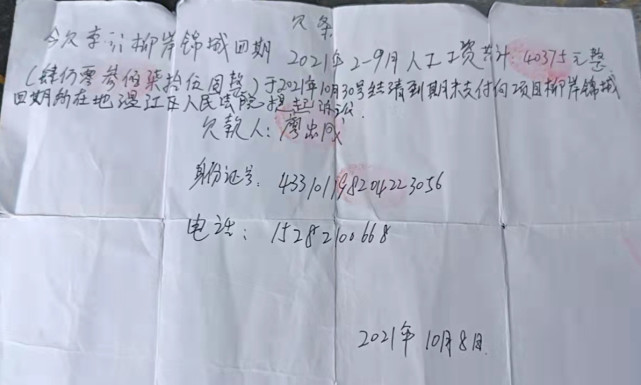 欠条
今欠李引柳岸锦城四期 2021年2-9月人工工资共计:40375元整
(肆仂零参佰柒拾伍圆整)于2021年10月30号结清到期未支付向项目柳岸锦城
四期所在地温江区人民法院提起诉讼
欠款人:廖出成
身份证号:433101198204223056
电话:15282100668
2021年10月8日